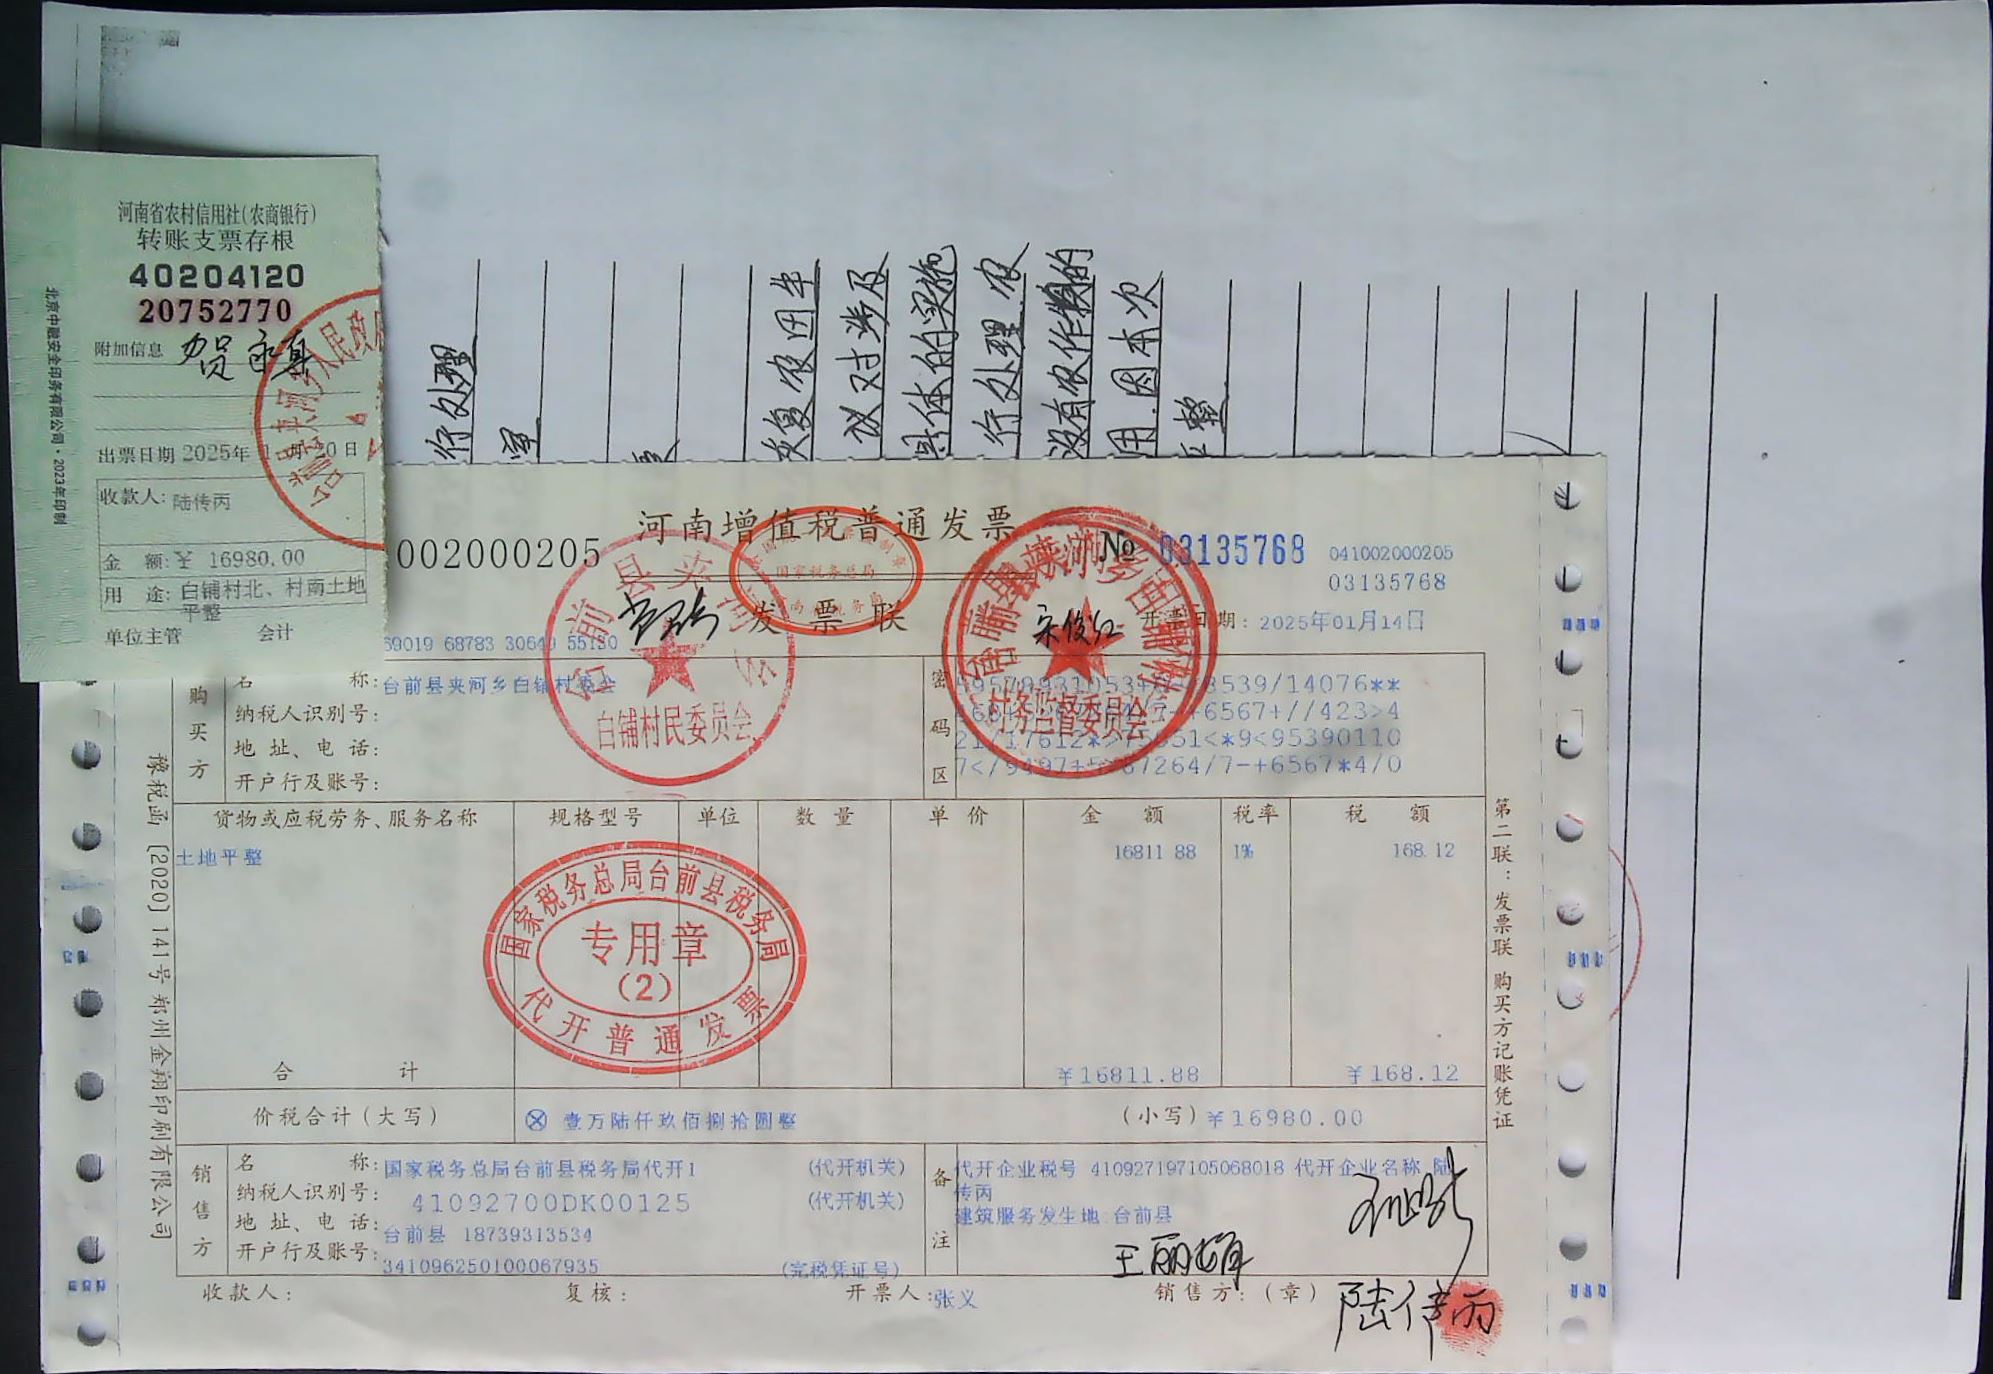 河南省农村信用社(农商银行)
转账支票存根
40204120
20752770
附加信息 贺
出票日期 2025年 1月20日
收款人: 陆传丙
金 额: ¥ 16980.00
用 途: 白铺村北、村南土地
平整
单位主管 会计
北京中融安全印务有限公司·2023年印制
行处理
恢复农田生
议对涉及
具体的实施
行处理.农
没有农作物的
用.因本次
整
002000205
河南增值税普通发票
发票联
国家税务总局
№ 03135768
041002000205
03135768
开票日期: 2025年01月14日
69019 68783 30640 55130
宋俊红
白铺村民委员会
村务监督委员会
购买方
名 称: 台前县夹河乡白铺村委会
纳税人识别号:
地 址、电 话:
开户行及账号:
密码区
7</9497+5>67264/7-+6567*4/0
货物或应税劳务、服务名称 规格型号 单位 数 量 单 价 金 额 税率 税 额
土地平整 16811.88 1% 168.12
国家税务总局台前县税务局
专用章
(2)
代开普通发票
合 计 ¥16811.88 ¥168.12
价税合计(大写) ⊗ 壹万陆仟玖佰捌拾圆整 (小写) ¥16980.00
销售方
名 称: 国家税务总局台前县税务局代开1 (代开机关)
纳税人识别号: 41092700DK00125 (代开机关)
地 址、电 话: 台前县 18739313534
开户行及账号: 341096250100067935 (完税凭证号)
备注
代开企业税号 410927197105068018 代开企业名称 陆
传丙
建筑服务发生地 台前县
收款人: 复核: 开票人: 张义 销售方: (章)
陆传丙
豫税函〔2020〕141号 郑州金翔印刷有限公司
第二联:发票联 购买方记账凭证